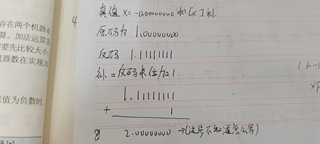 存在两个机器
算。加法运算
要先比较大小
器数在实现
值为负数时,
4
真值 X=-0.0000000 求[X]补.
原码为 1.0000000
反码 1.1111111
补=反码末位加1
1.1111111
+ 1
8 2.0000000 →(这号不知道怎么写)